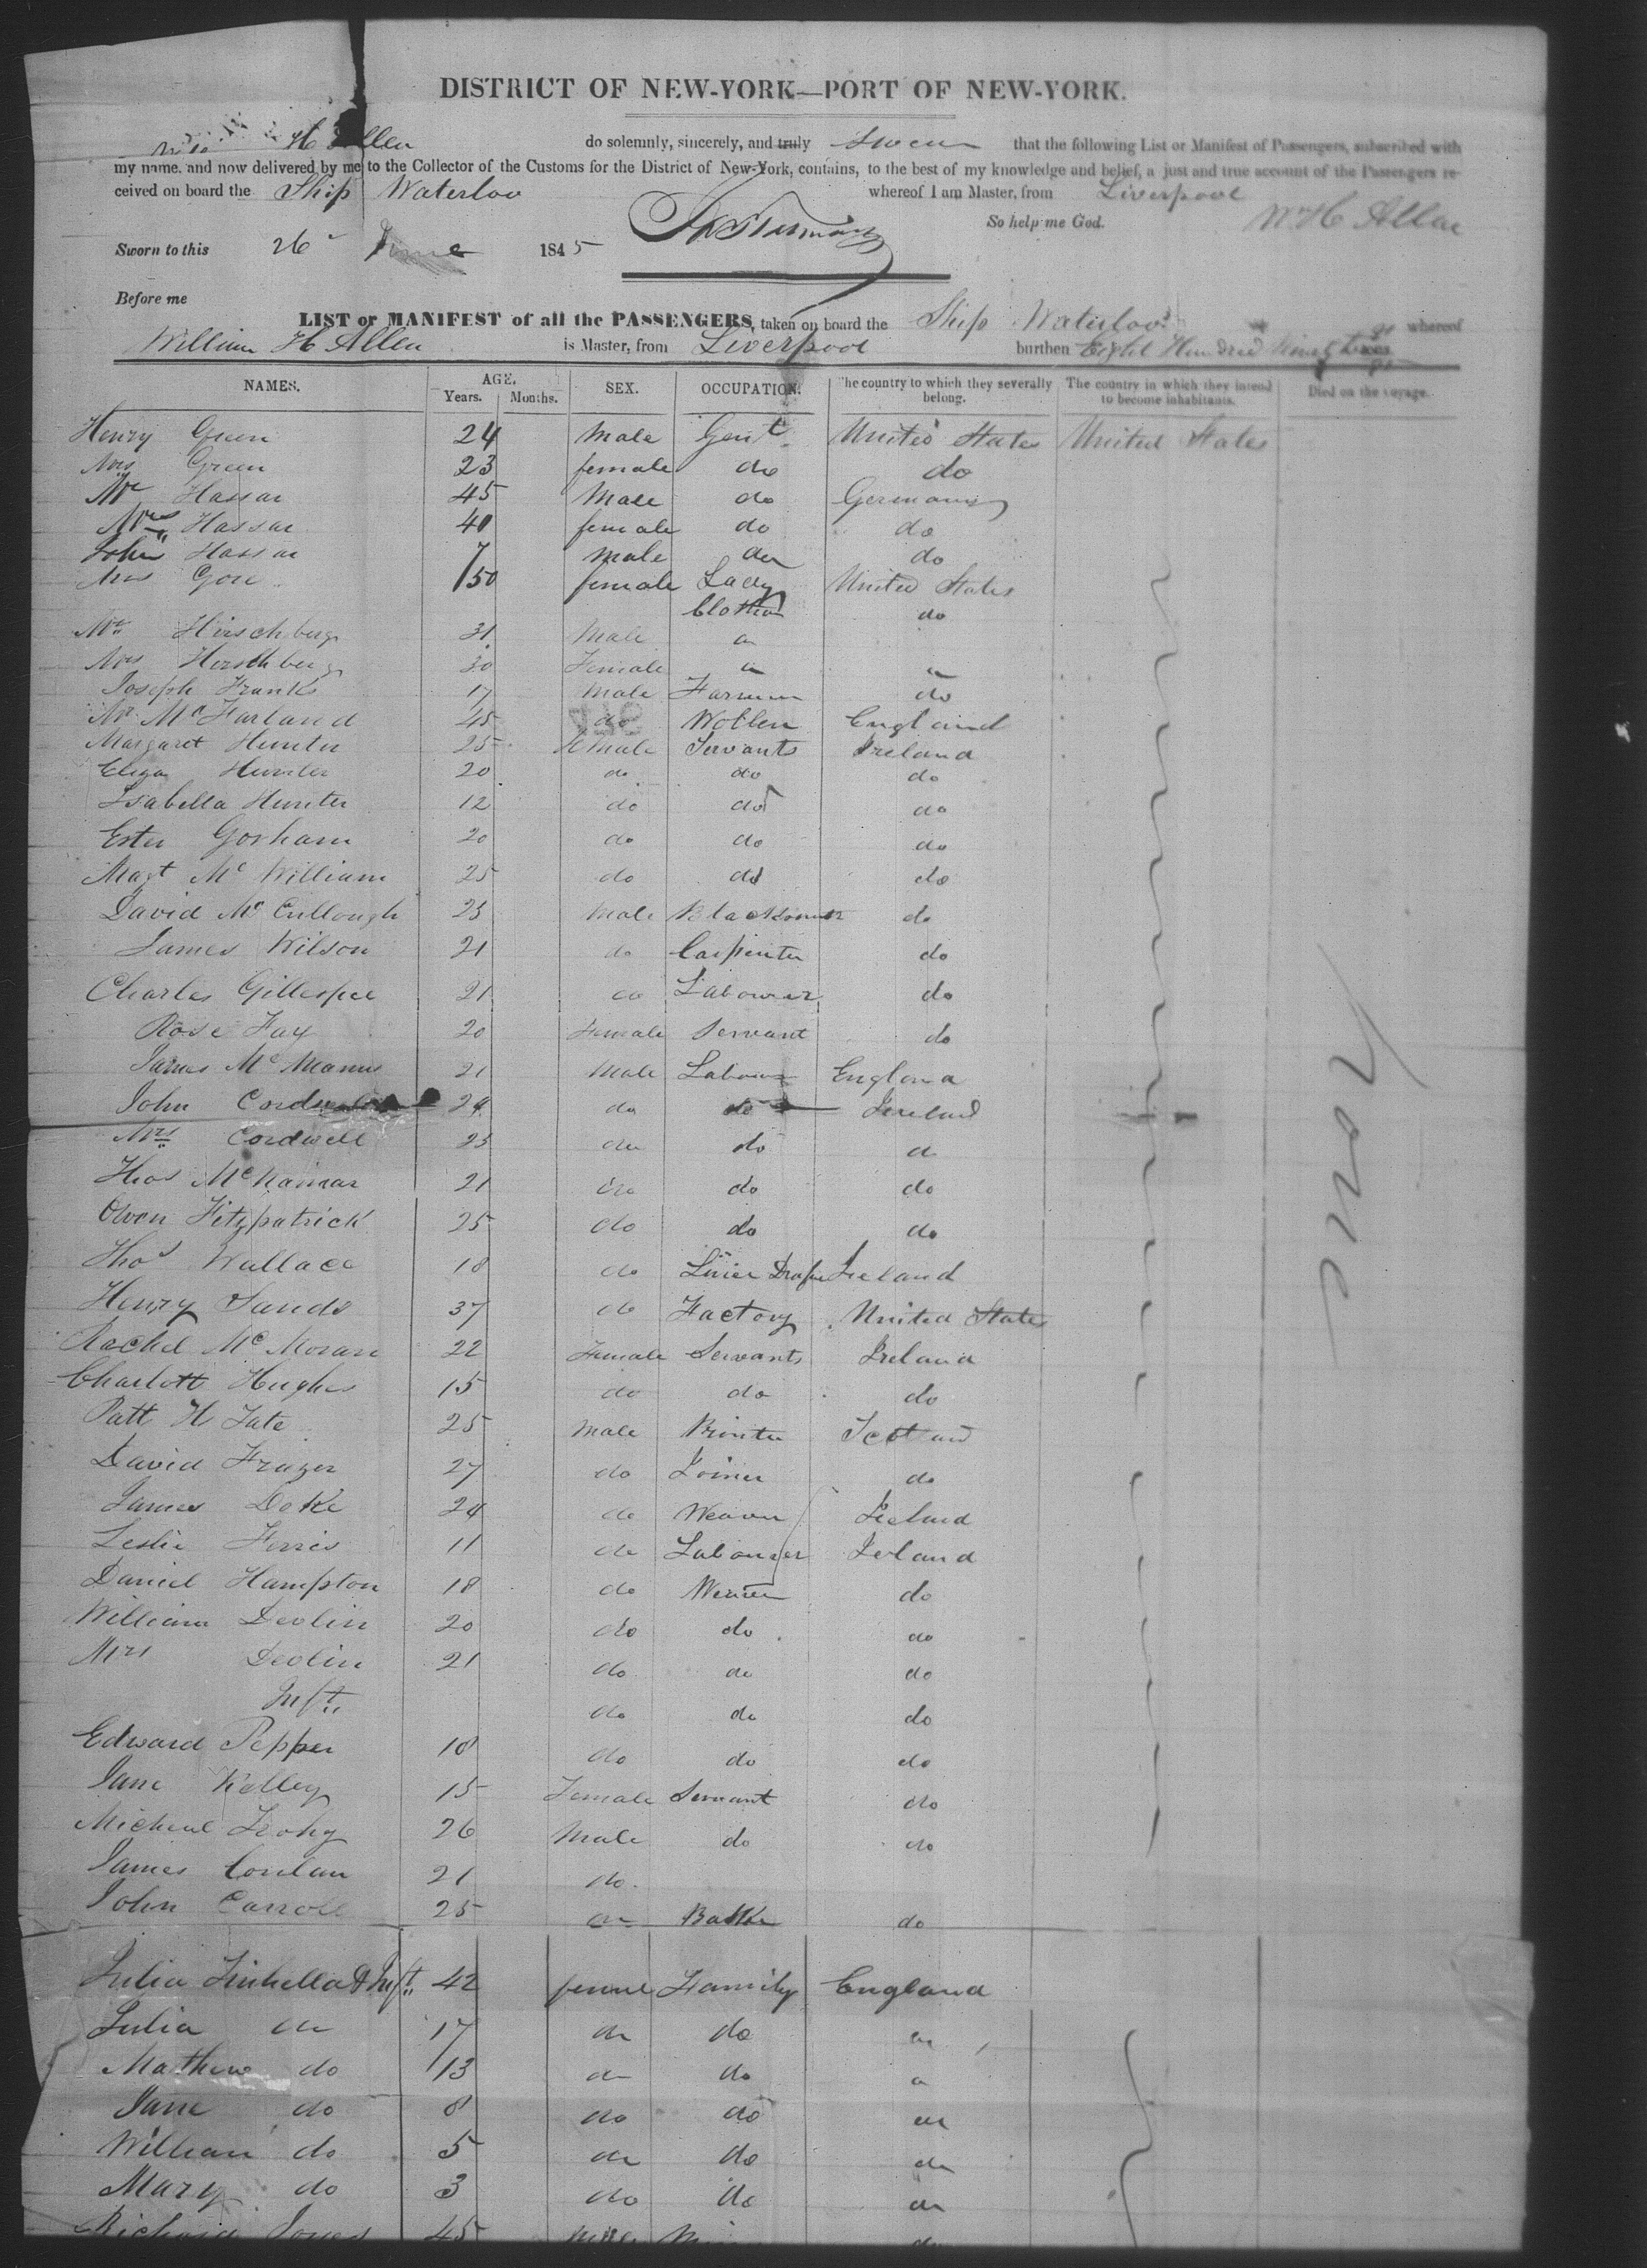 DISTRICT OF NEW-YORK—PORT OF NEW-YORK.
H Allen do solemnly, sincerely, and truly Swear that the following List or Manifest of Passengers, subscribed with
my name, and now delivered by me to the Collector of the Customs for the District of New-York, contains, to the best of my knowledge and belief, a just and true account of the Passengers re-
ceived on board the Ship Waterloo whereof I am Master, from Liverpool
So help me God. Wm H Allen
Sworn to this 26 June 1845
Before me
LIST or MANIFEST of all the PASSENGERS, taken on board the Ship Waterloo whereof
William H Allen is Master, from Liverpool burthen Eight Hundred Ninety
NAMES. AGE. Years. Months. SEX. OCCUPATION. The country to which they severally belong. The country in which they intend to become inhabitants. Died on the voyage.
Henry Green 24 Male Gent United States United States
Mrs Green 23 female do do
Mr Hassar 45 Male do Germany
Mrs Hassar 40 female do do
John Hassar 7 Male do do
Mrs Gore 50 female Lady United States
Clothier do
Mr Hirschberg 31 Male
Mrs Hirschberg 30 Female
Joseph Franks 17 Male Farmer do
Mr McFarland 45 do Wollen England
Margaret Hunter 25 female Servants Ireland
Eliza Hunter 20 do do do
Isabella Hunter 12 do do do
Ester Gorham 20 do do do
Magt McWilliam 25 do do do
David McCullough 23 Male Blacksmith do
James Wilson 21 do Carpenter do
Charles Gillespee 21 do Labourer do
Rose Fay 20 Female Servant do
James McManus 21 Male Labourer England
John Cordwell 24 do do Ireland
Mrs Cordwell 25 do do do
Thos McNamar 21 do do do
Owen Fitzpatrick 25 do do do
Thos Wallace 18 do Linen Draper Ireland
Henry Sands 37 do Factory United States
Rachel McMoran 22 Female Servants Ireland
Charlott Hughes 15 do do do
Patt H Tate 25 Male Printer Scotland
David Frazer 27 do Joiner do
James Doke 24 do Weaver Ireland
Leslie Ferris 11 do Labourer Ireland
Daniel Hampton 18 do Weaver do
William Devlin 20 do do do
Mrs Devlin 21 do do do
Inft do do do
Edward Pepper 18 do do do
Jane Kelley 15 Female Servant do
Micheal Leohy 26 Male do do
James Conlan 21 do
John Carroll 25 do do
Julia & Inft 42 female Family England
Julia do 17 do do do
Mathew do 13 do do do
Jane do 8 do do do
William do 5 do do do
Mary do 3 do do do
Richard Jones 45 Male